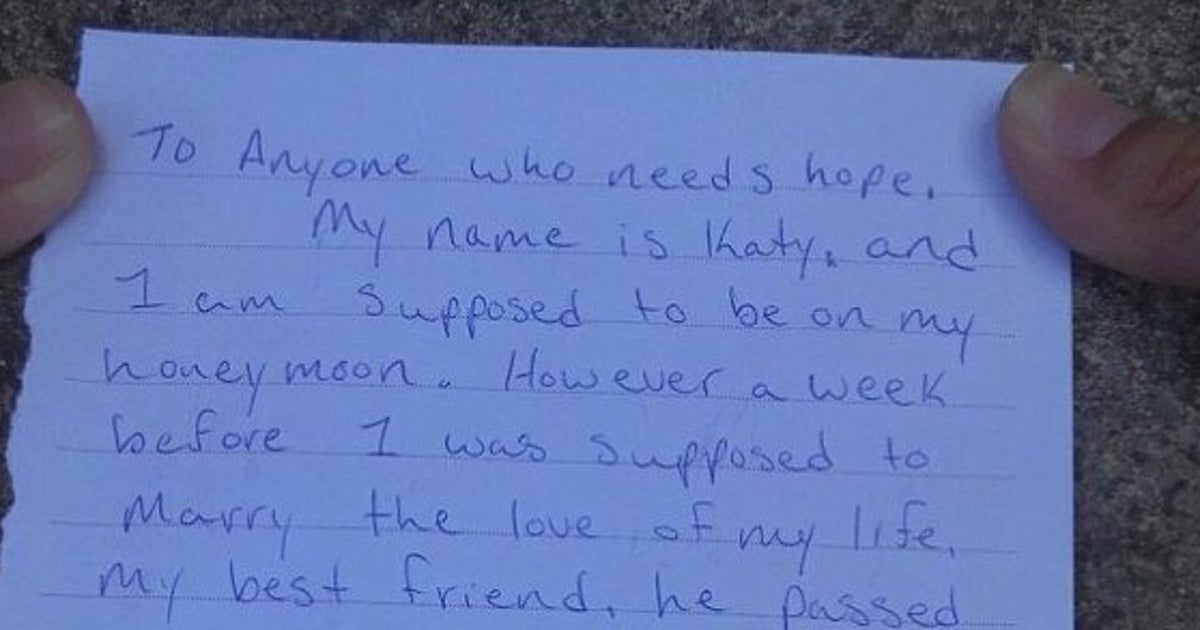 To Anyone who needs hope.
My name is Katy, and
I am supposed to be on my
honeymoon. However a week
before I was supposed to
Marry the love of my life,
My best friend, he passed